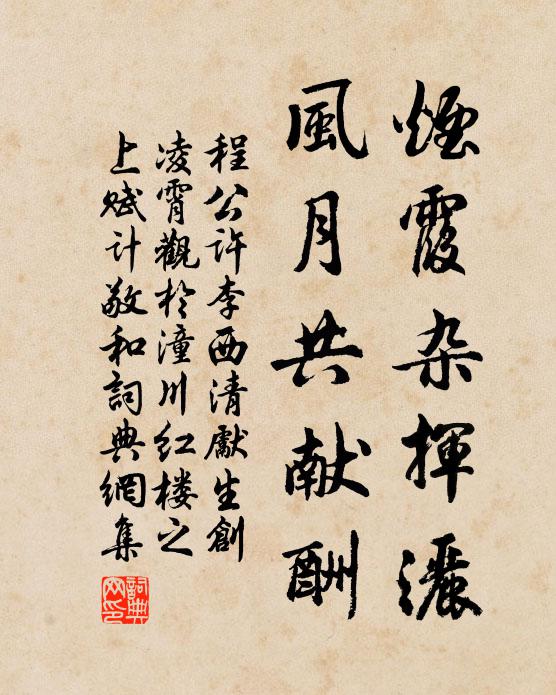 煙霞杂揮灑
風月共献酬
程公许李西清獻生創
凌霄觀於潼川红楼之
上赋计敬和詞典網集
詞典網印